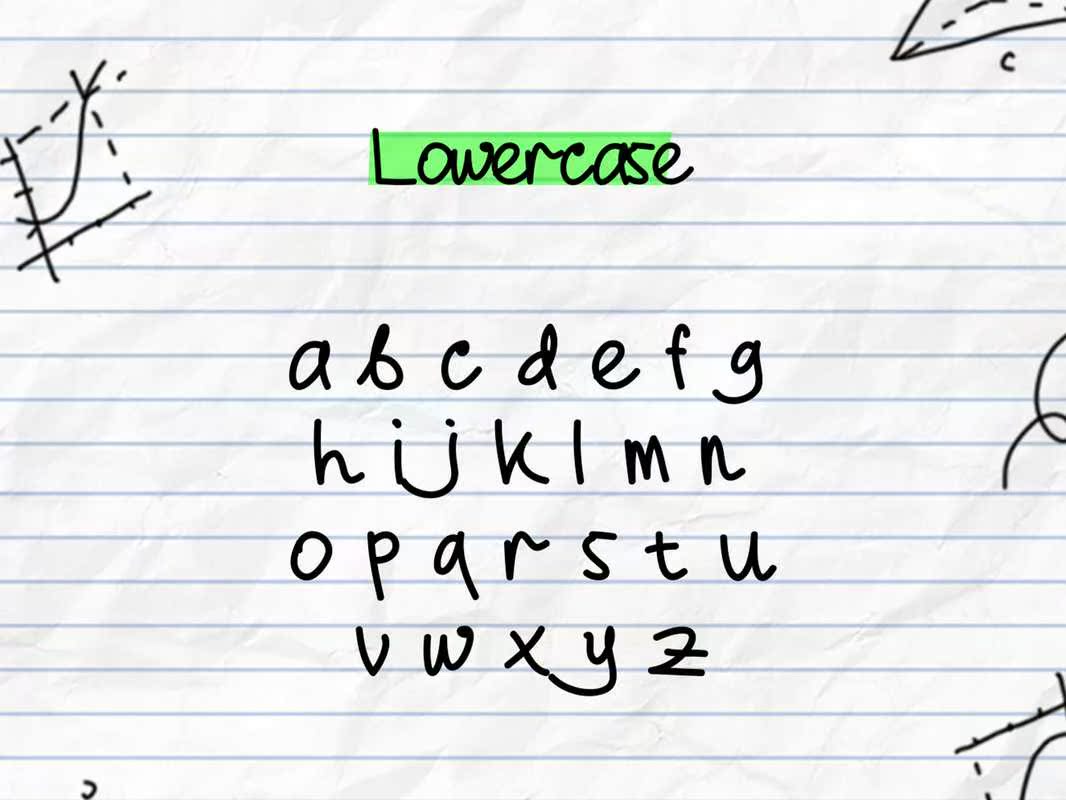 c
Lowercase
a b c d e f g
h i j k l m n
o p q r s t u
v w x y z